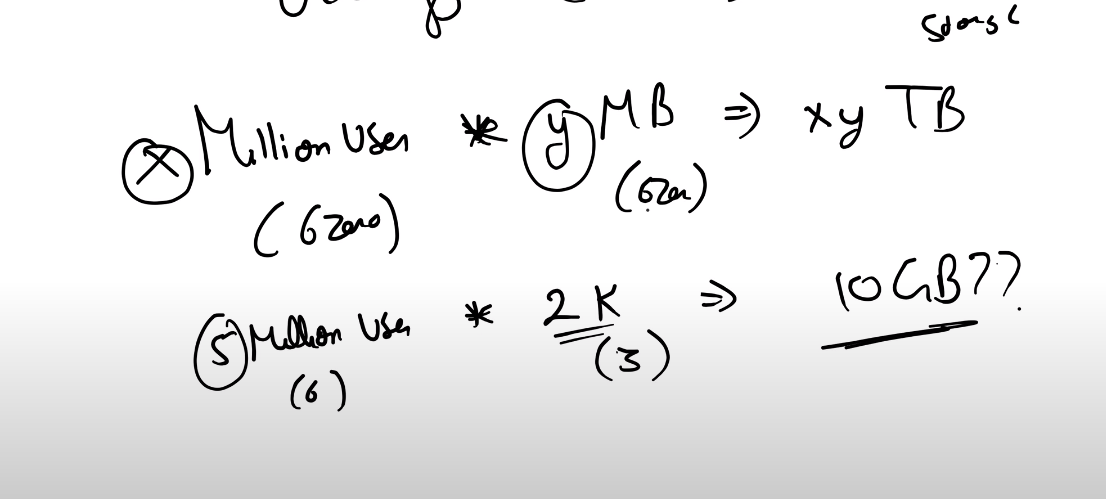 Storage
x Million User * y MB ⇒ xy TB
(6 zero) (6 zero)
5 Million User * 2 K ⇒ 10 GB ??
(6) (3)